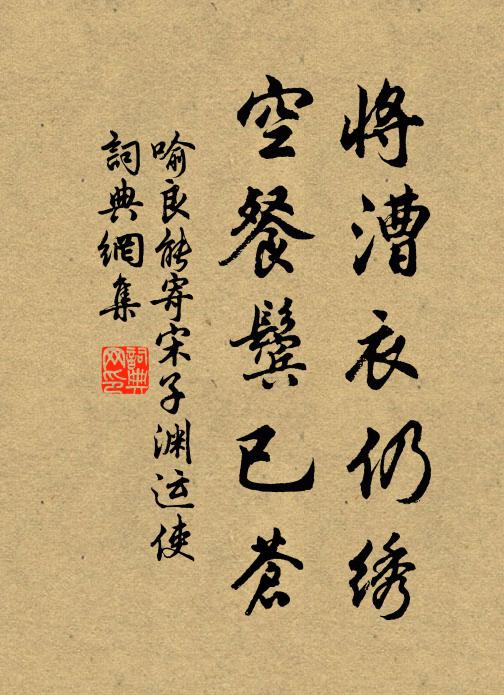 将漕衣仍绣
空餐鬓已苍
喻良能寄宋子渊运使
词典網集
詞典网印